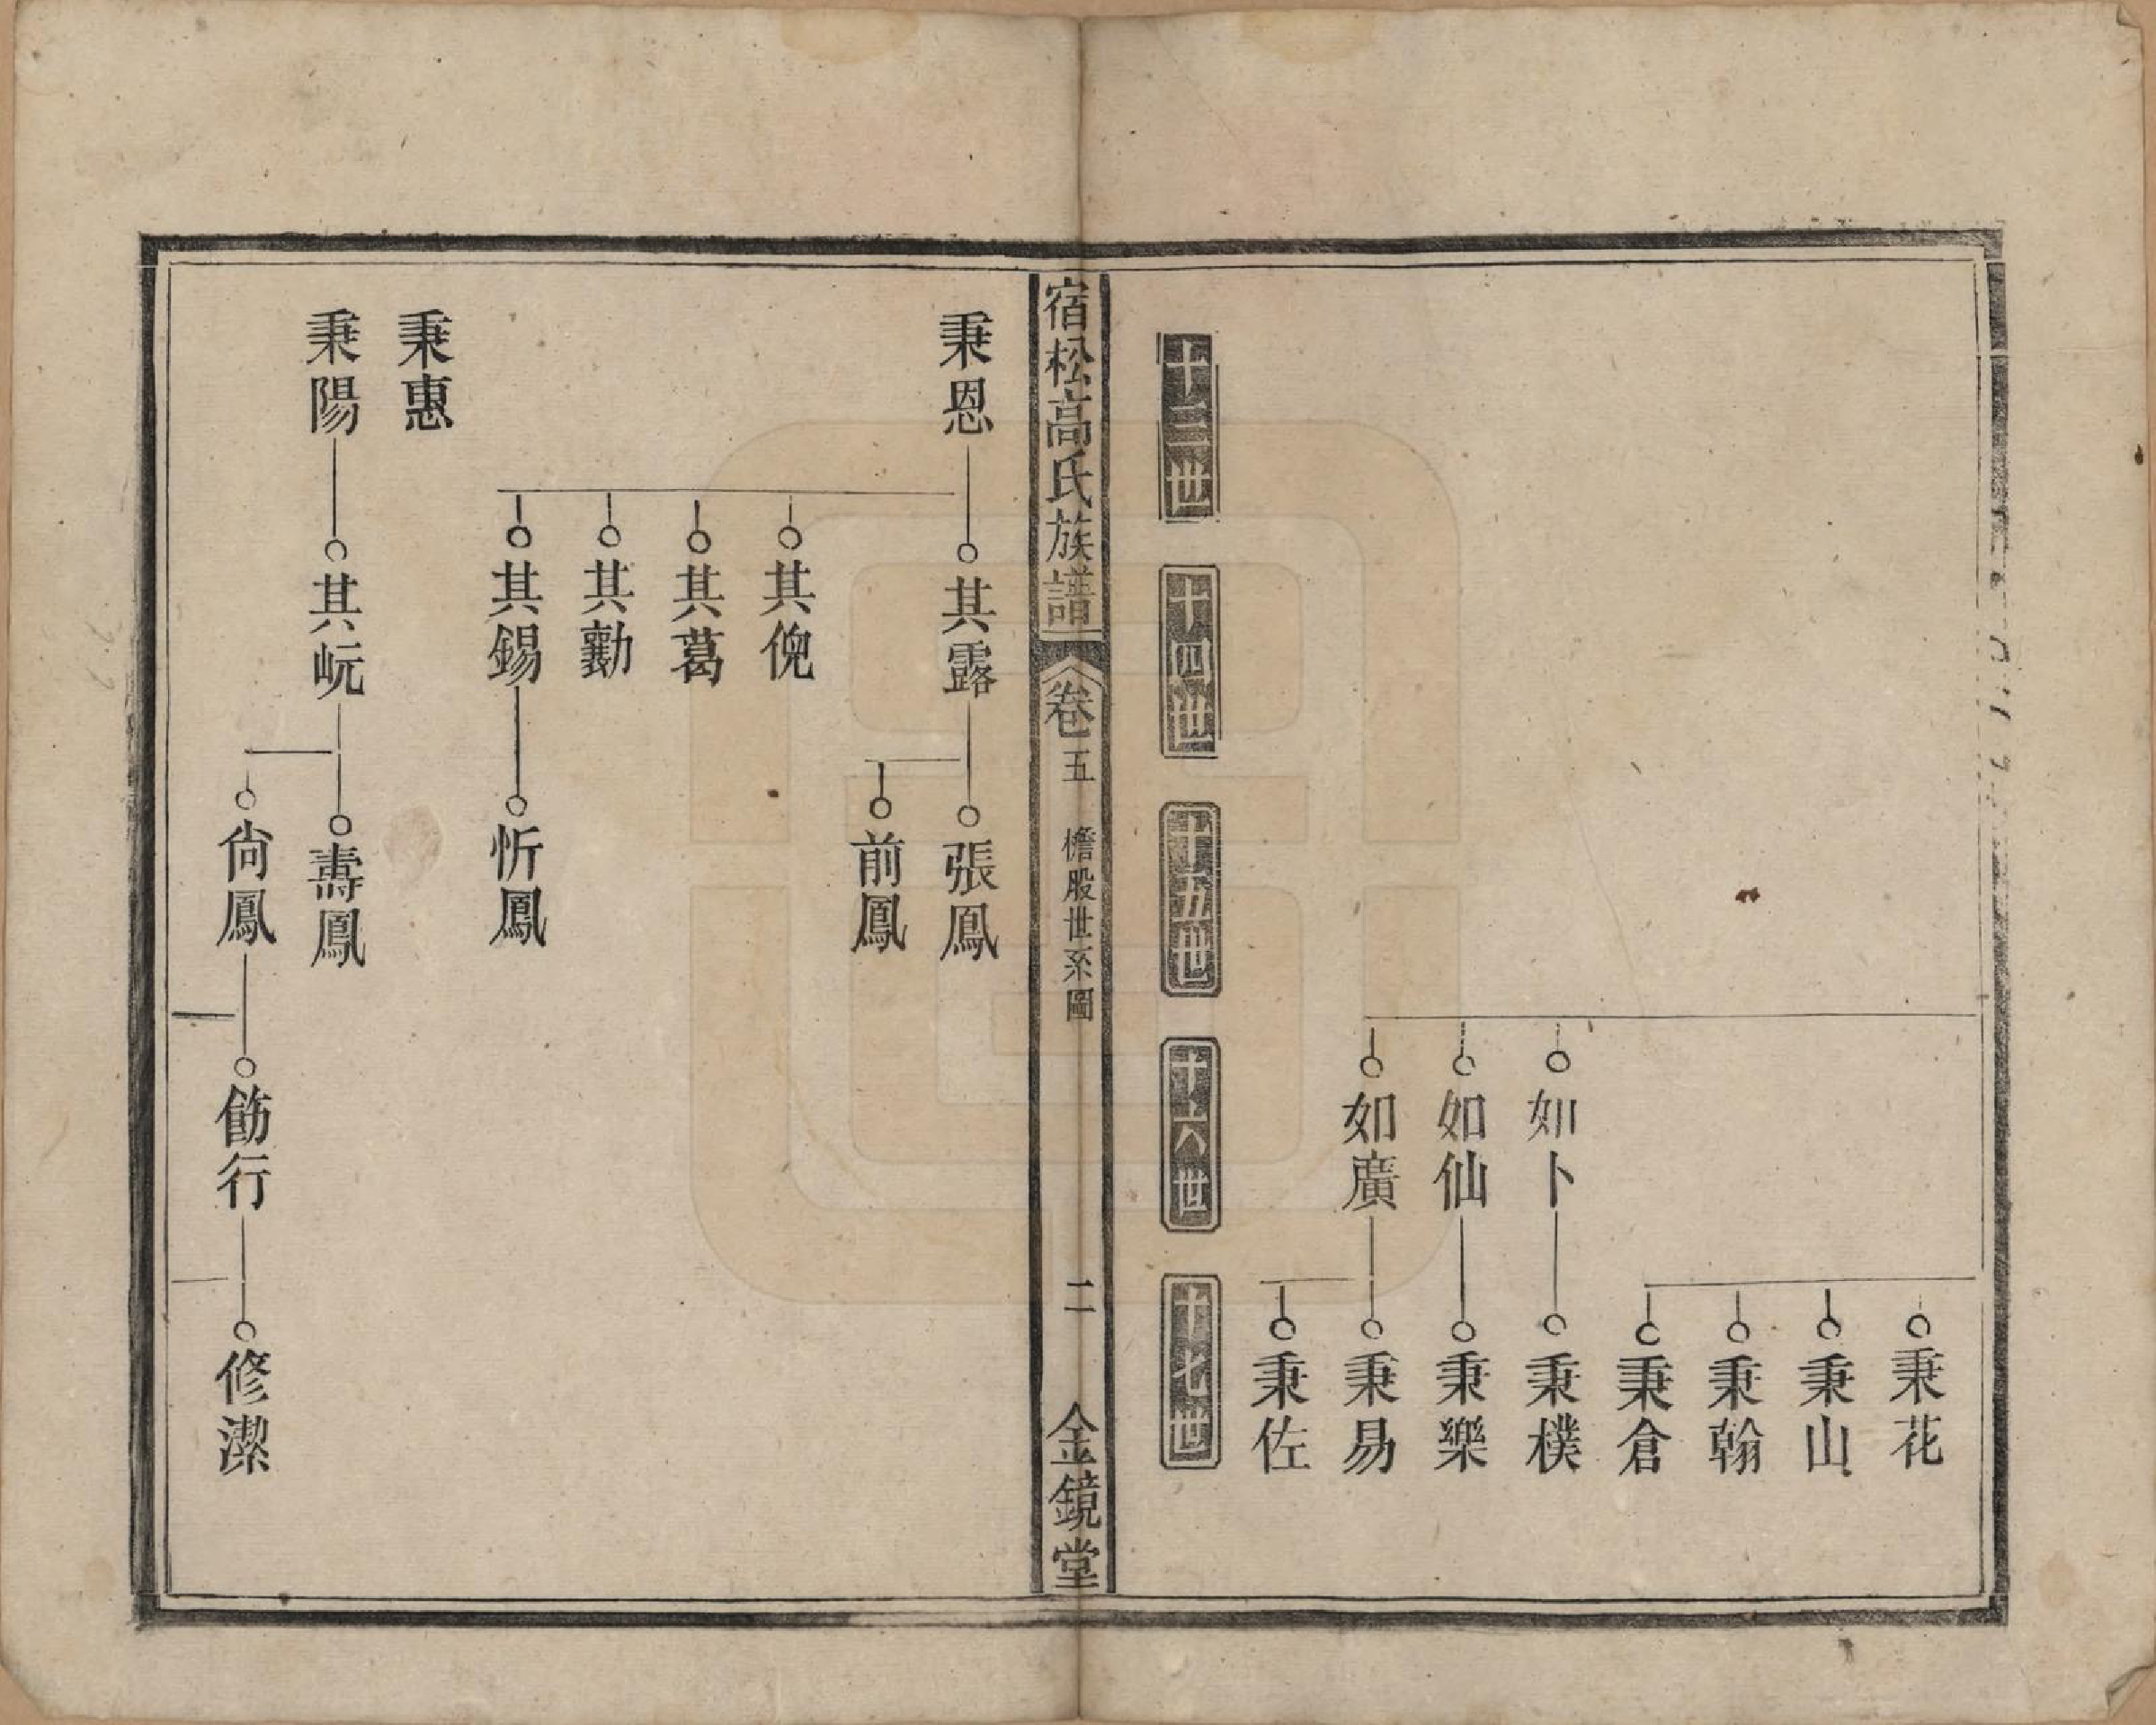 秉花
秉山
秉翰
秉倉
如卜
秉樸
如仙
秉樂
如廣
秉易
秉佐
十三世
十四世
十五世
十六世
十七世
宿松高氏族譜
卷五
檐股世系圖
二
金鏡堂
秉恩
其露
張鳳
前鳳
其倪
其葛
其勷
其錫
忻鳳
秉惠
秉陽
其岏
壽鳳
尙鳳
飭行
修潔